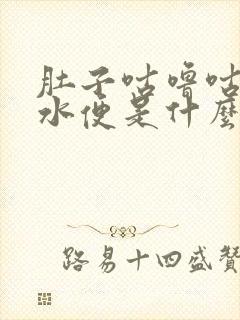 肚子咕噜咕
水便是什麼
路易十四盛贊